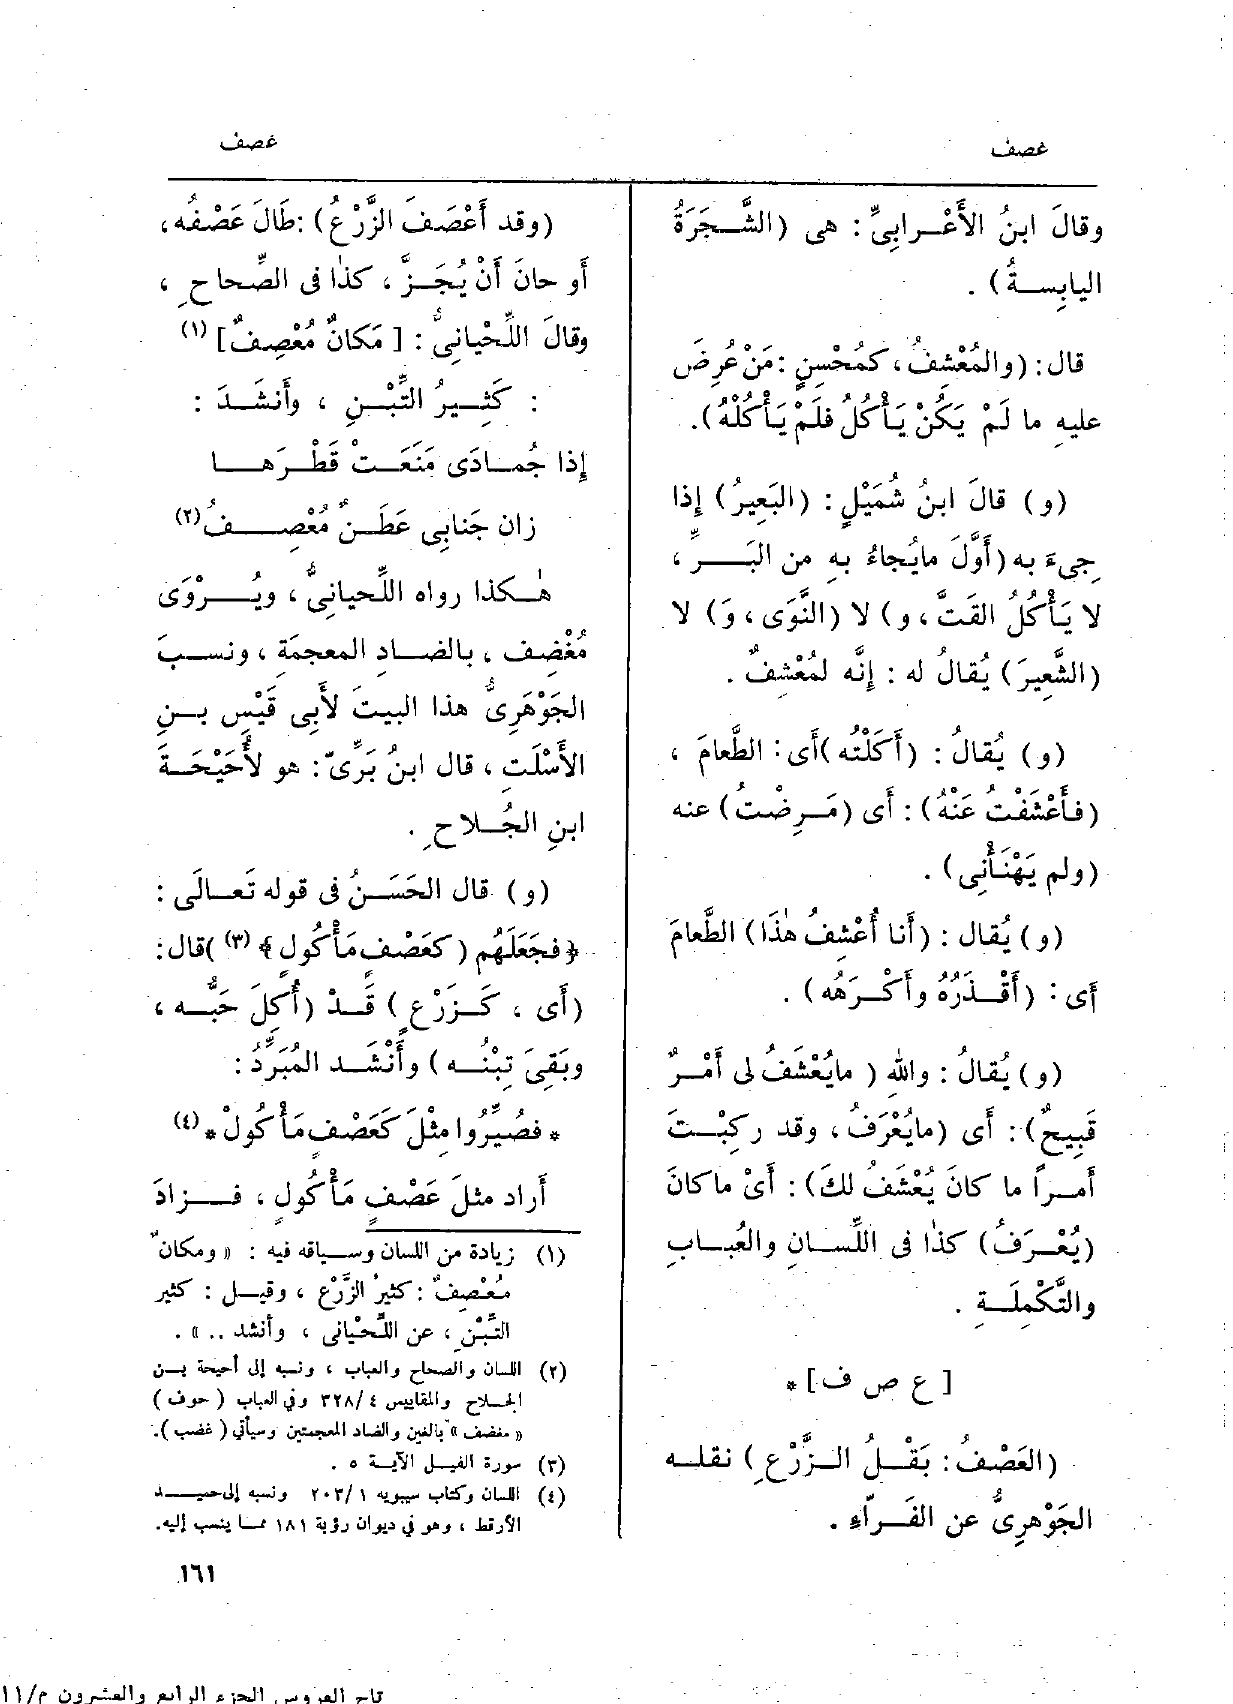 عصف
عصف
وقالَ ابنُ الأَعْرابِىِّ : هى (الشَّجَرَةُ
اليابِسةُ) .
قال : (والمُعْشِفُ ، كمُحْسِنٍ : مَنْ عُرِضَ
عليهِ ما لَمْ يَكُنْ يَأْكُلُ فلَمْ يَأْكُلْهُ).
(و) قالَ ابنُ شُمَيْلٍ : (البَعِيرُ) إذا
جِىءَ به (أَوَّلَ مايُجاءُ بهِ من البَرِّ ،
لا يَأْكُلُ القَتَّ ، و) لا (النَّوَى ، وَ) لا
(الشَّعِيرَ) يُقالُ له : إِنَّه لمُعْشِفٌ .
(و) يُقالُ : (أَكَلْتُه) أى : الطَّعامَ ،
(فأَعْشَفْتُ عَنْهُ) : أَى (مَرِضْتُ) عنه
(ولم يَهْنَأْنِى) .
(و) يُقال : (أنا أُعْشِفُ هٰذَا) الطَّعامَ
أى : (أَقْذَرُهُ وأَكْرَهُه) .
(و) يُقالُ : واللهِ ( مايُعْشَفُ لى أَمْرٌ
قَبِيحٌ) : أَى (مايُعْرَفُ ، وقد رَكِبْتَ
أَمراً ما كانَ يُعْشَفُ لكَ) : أَىْ ماكانَ
(يُعْرَفُ) كذٰا فى اللِّسانِ والعُبابِ
والتَّكْمِلَةِ .
[ ع ص ف ] *
(العَصْفُ : بَقْلُ الزَّرْعِ) نقله
الجَوْهرِىُّ عن الفَرّاءِ .
(وقد أَعْصَفَ الزَّرْعُ) : طَالَ عَصْفُه ،
أو حانَ أَنْ يُجَزَّ ، كذٰا فى الصِّحاحِ ،
وقالَ اللِّحْيانِىُّ : [ مَكانٌ مُعْصِفٌ] (١)
: كَثِيرُ التِّبْنِ ، وأَنشَدَ :
إِذا جُمادَى مَنَعَتْ قَطْرَها
زان جَنابِى عَطَنٌ مُعْصِفُ (٢)
هٰكذا رواه اللِّحيانِىُّ ، ويُرْوَى
مُغْضِف ، بالضادِ المعجمَةِ ، ونسبَ
الجَوْهَرِىُّ هذا البيتَ لأَبِى قَيْسِ بنِ
الأَسْلَتِ ، قال ابنُ بَرِّىّ : هو لأُحَيْحَةَ
ابنِ الجُلاحِ .
(و) قال الحَسَنُ فى قوله تَعالَى :
﴿ فجَعَلَهُم ( كعَصْفٍ مَأْكُولٍ ﴾ (٣) ) قال :
(أَى ، كَزَرْعٍ) قَدْ (أُكِلَ حَبُّه ،
وبَقِىَ تِبْنُه ) وأَنْشَد المُبَرِّدُ :
* فصُيِّرُوا مِثْلَ كَعَصْفٍ مَأْكُولْ * (٤)
أراد مثلَ عَصْفٍ مَأْكُولٍ ، فزادَ
(١) زيادة من اللسان وسياقه فيه : « ومكانٌ
مُعْصِفٌ : كثيرُ الزَّرْعِ ، وقيل : كثير
التِّبْنِ ، عن اللِّحْيانى ، وأنشد .. » .
(٢) اللسان والصحاح والعباب ، ونسبه إلى أحيحة بن
الجلاح والمقاييس ٤ /٣٢٨ وفي العباب ( حوف )
« مغضف » بالغين والضاد المعجمتين وسيأتي ( غضب ).
(٣) سورة الفيل الآية ٥ .
(٤) اللسان وكتاب سيبويه ١ /٢٠٣ ونسبه إلى حميد
الأرقط ، وهو في ديوان رؤبة ١٨١ مما ينسب إليه.
١٦١
تاج العروس الجزء الرابع والعشرون م/١١